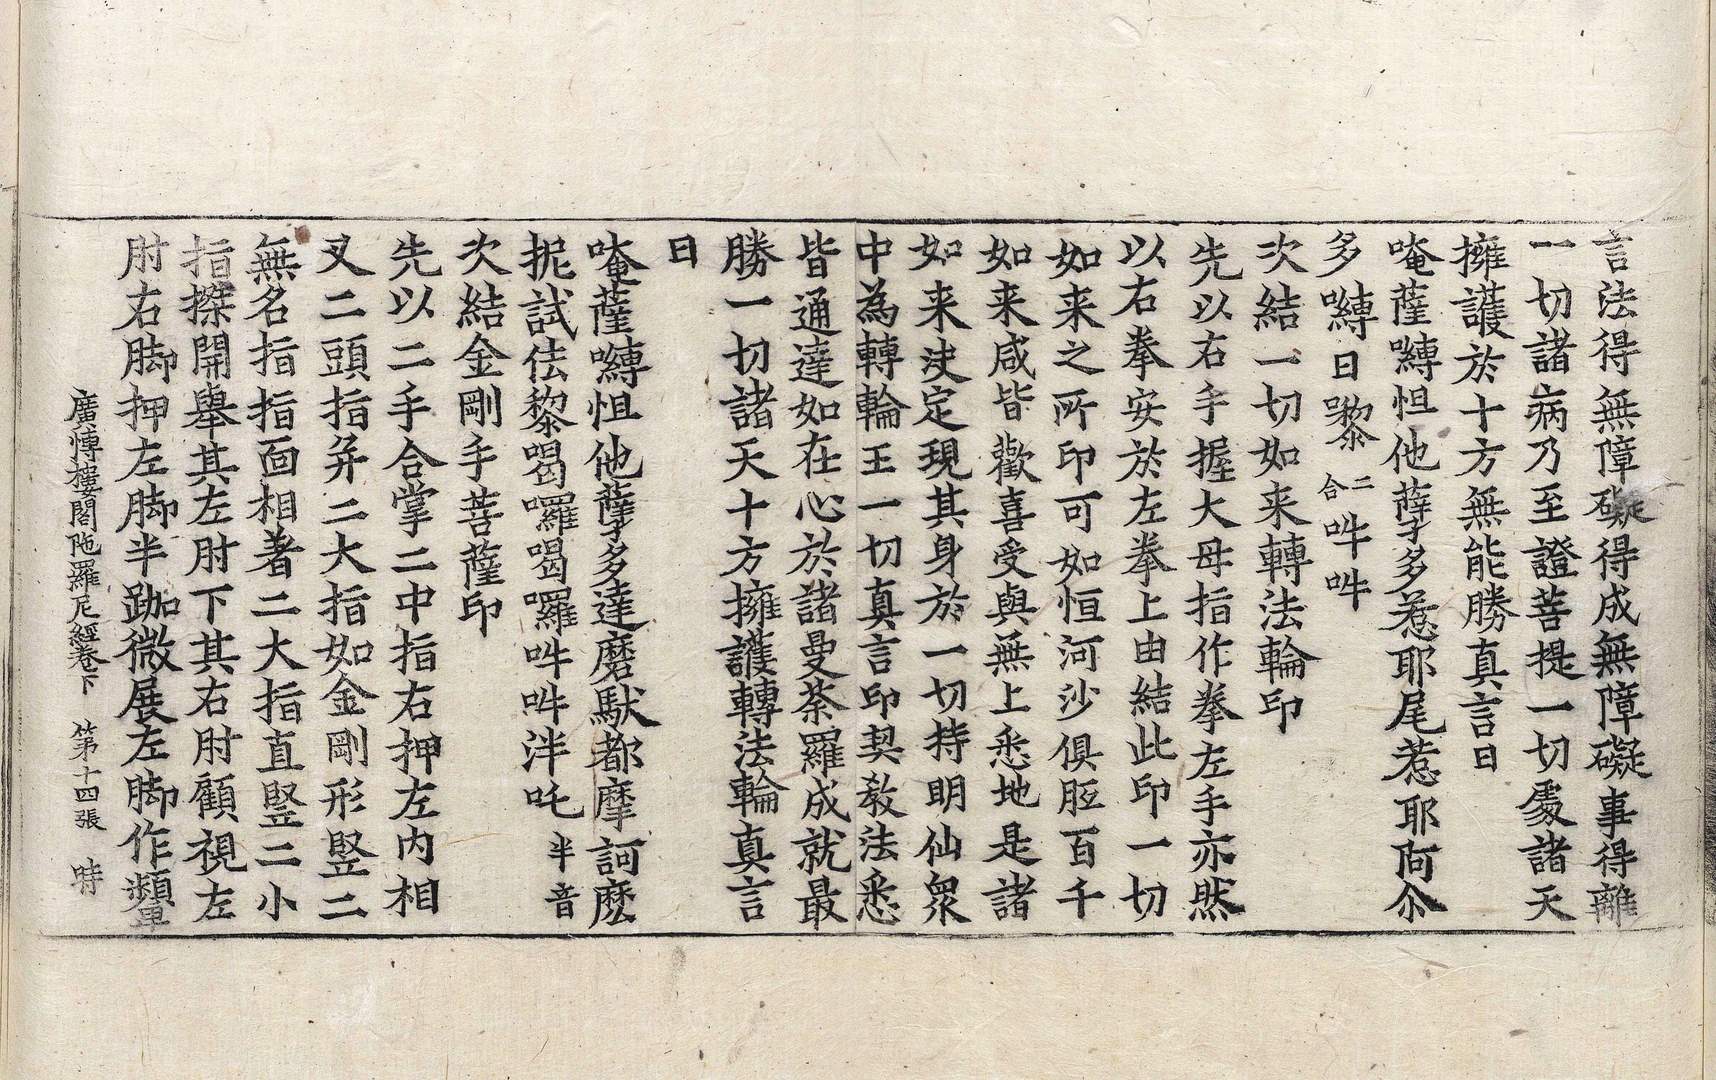 言法得無障礙得成無障礙事得離
一切諸病乃至證菩提一切處諸天
擁護於十方無能勝真言曰
唵薩嚩怛他蘖多惹耶尾惹耶阿尒
多嚩日㘑二合吽吽
次結一切如来轉法輪印
先以右手握大母指作拳左手亦然
以右拳安於左拳上由結此印一切
如来之所印可如恒河沙俱胝百千
如来咸皆歡喜受與無上悉地是諸
如来决定現其身於一切持明仙衆
中為轉輪王一切真言印契教法悉
皆通達如在心於諸曼荼羅成就最
勝一切諸天十方擁護轉法輪真言
曰
唵薩嚩怛他蘖多達磨馱都摩訶麽
抳試佉黎㘁囉㘁囉吽吽泮吒半音
次結金剛手菩薩印
先以二手合掌二中指右押左内相
叉二頭指并二大指如金剛形竪二
無名指指面相著二大指直竪二小
指搩開舉其左肘下其右肘顧視左
肘右脚押左脚半跏微展左脚作顰
廣愽樓閣陁羅尼經卷下 第十四張 時